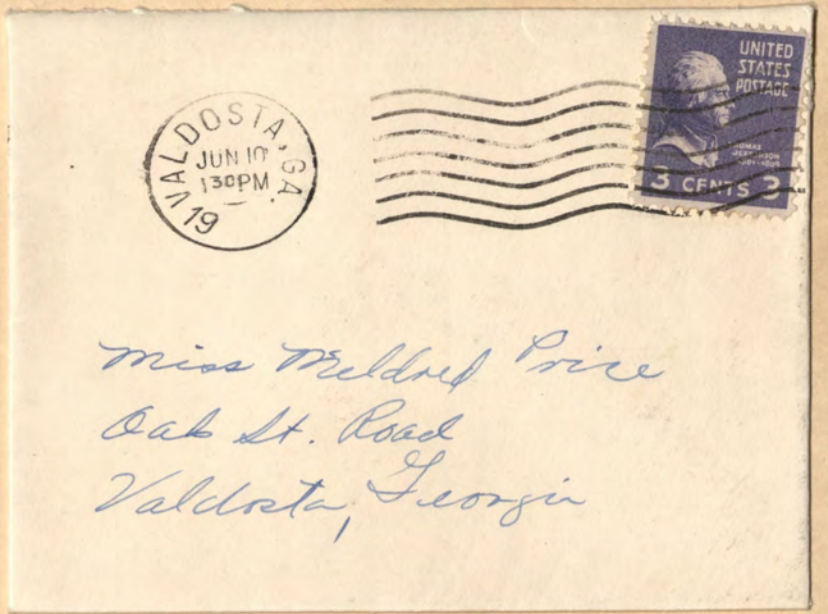 VALDOSTA, GA.
JUN 10
130PM
19
UNITED
STATES
POSTAGE
THOMAS
JEFFERSON
3 CENTS 3
Miss Meldred Price
Oak St. Road
Valdosta, Georgia